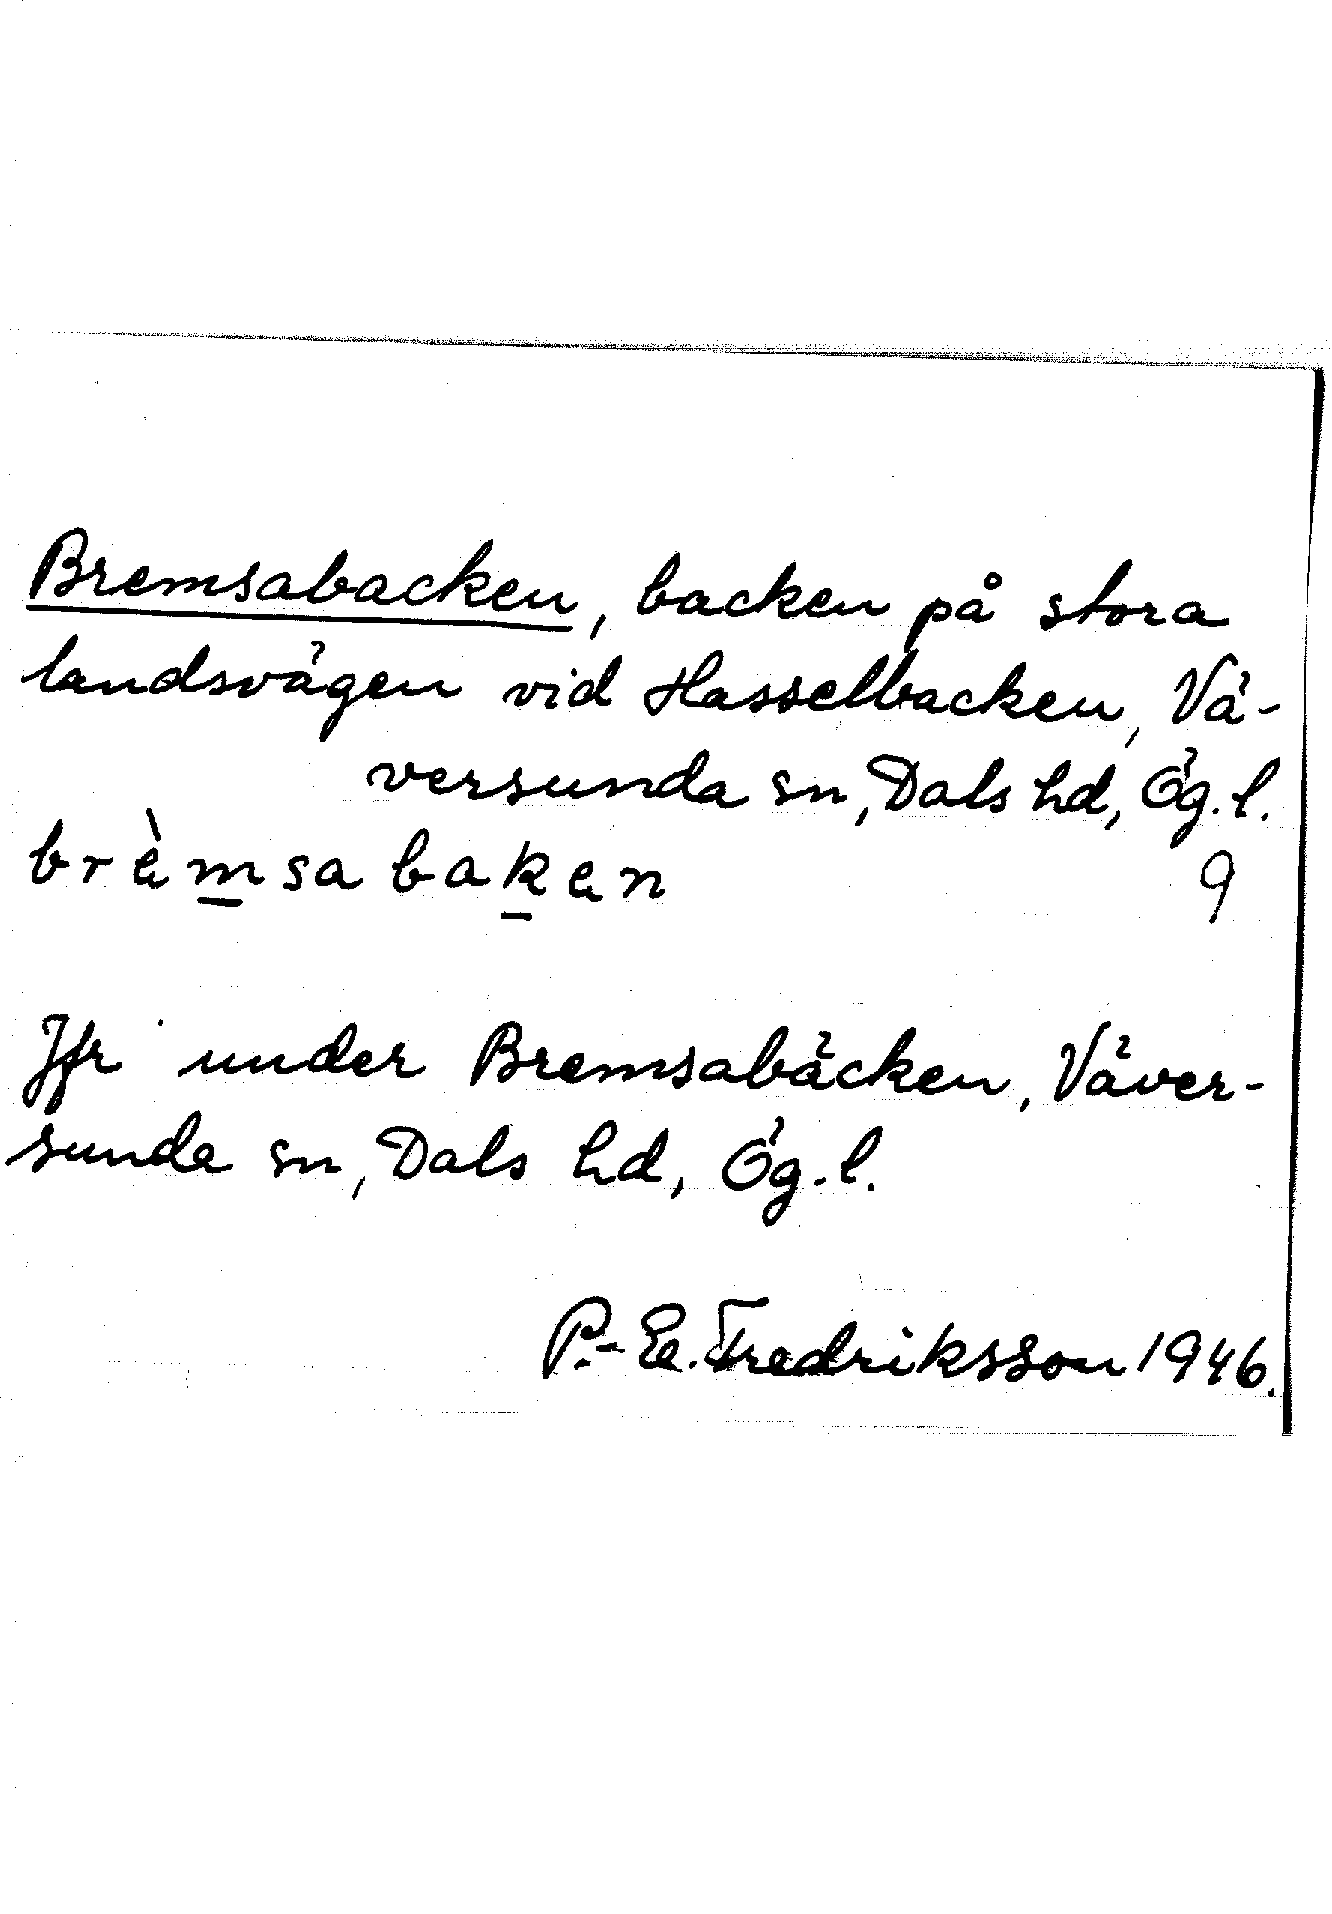 Bremsabacken, backen på stora
landsvägen vid Hasselbacken, Vä-
versunda sn, Dals hd, Ög.l.
brèmsabaken
9
Jfr under Bremsabäcken, Väver-
sunda sn, Dals hd, Ög.l.
P.-E. Fredriksson 1946.